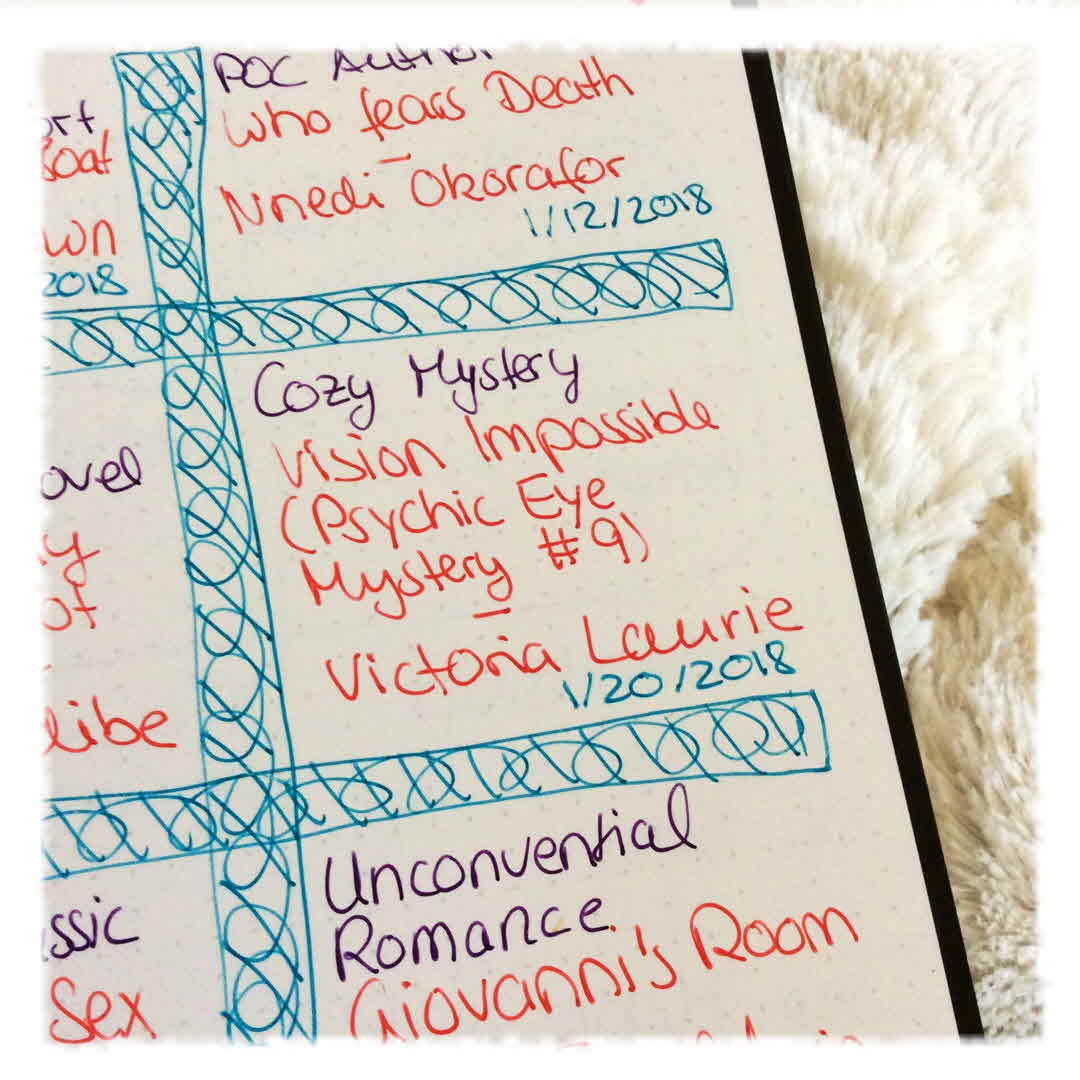 POC Author
Who fears Death
–
Nnedi Okorafor
1/12/2018
Boat
wn
2018
Cozy Mystery
Vision Impossible
(Psychic Eye
Mystery #9)
–
Victoria Laurie
1/20/2018
ovel
y
of
libe
Unconvential
Romance
Giovanni's Room
ssic
Sex